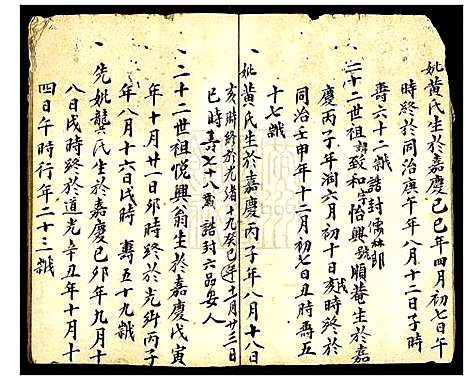 妣黃氏生於嘉慶己巳年四月初七日午
時終於同治庚午年八月十二日子時
壽六十二歲誥封儒林郎
二十二世祖諱致和字怡興號順菴生於嘉
慶丙子年潤六月初十日亥時終於
同治壬申年十二月初七日丑時壽五
十七歲
妣黃氏生於嘉慶丙子年八月十八日
亥時終於光緒十九癸巳年十一月廿三日
巳時壽七十八歲誥封六品安人
二十二世祖悅興翁生於嘉慶戊寅
年十月廿一日卯時終於光緒丙子
年八月十六日戌時壽五十九歲
先妣龔氏生於嘉慶己卯年九月十
八日戌時終於道光辛丑年十月十
四日午時行年二十三歲